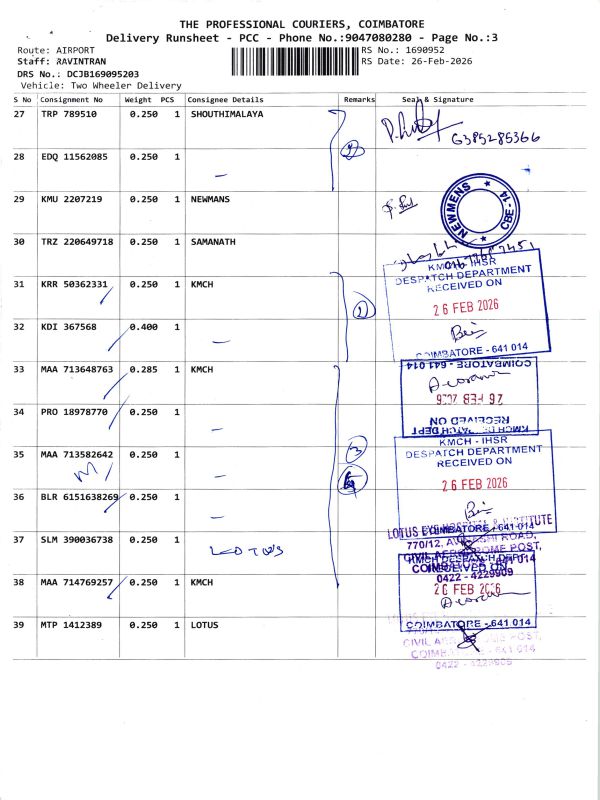 THE PROFESSIONAL COURIERS, COIMBATORE
Delivery Runsheet - PCC - Phone No.:9047080280 - Page No.:3
Route: AIRPORT RS No.: 1690952
Staff: RAVINTRAN RS Date: 26-Feb-2026
DRS No.: DCJB169095203
Vehicle: Two Wheeler Delivery
S No Consignment No Weight PCS Consignee Details Remarks Seal & Signature
27 TRP 789510 0.250 1 SHOUTHIMALAYA
6385285366
28 EDQ 11562085 0.250 1
29 KMU 2207219 0.250 1 NEWMANS
NEWMENS
CBE-14
30 TRZ 220649718 0.250 1 SAMANATH
KMCH - IHSR
DESPATCH DEPARTMENT
31 KRR 50362331 0.250 1 KMCH
RECEIVED ON
26 FEB 2026
32 KDI 367568 0.400 1
COIMBATORE - 641 014
33 MAA 713648763 0.285 1 KMCH
COIMBATORE - 641 014
26 FEB 2026
34 PRO 18978770 0.250 1
RECEIVED ON
KMCH DESPATCH DEPT
KMCH - IHSR
35 MAA 713582642 0.250 1 3
DESPATCH DEPARTMENT
RECEIVED ON
26 FEB 2026
36 BLR 6151638269 0.250 1
COIMBATORE - 641 014
37 SLM 390036738 0.250 1
770/12, AVINASHI ROAD,
CIVIL AERODROME POST,
COIMBATORE - 641 014
0422 - 4229909
38 MAA 714769257 0.250 1 KMCH
KMCH DESPATCH DEPT
RECEIVED ON
26 FEB 2026
39 MTP 1412389 0.250 1 LOTUS
COIMBATORE - 641 014
0422 - 4229909